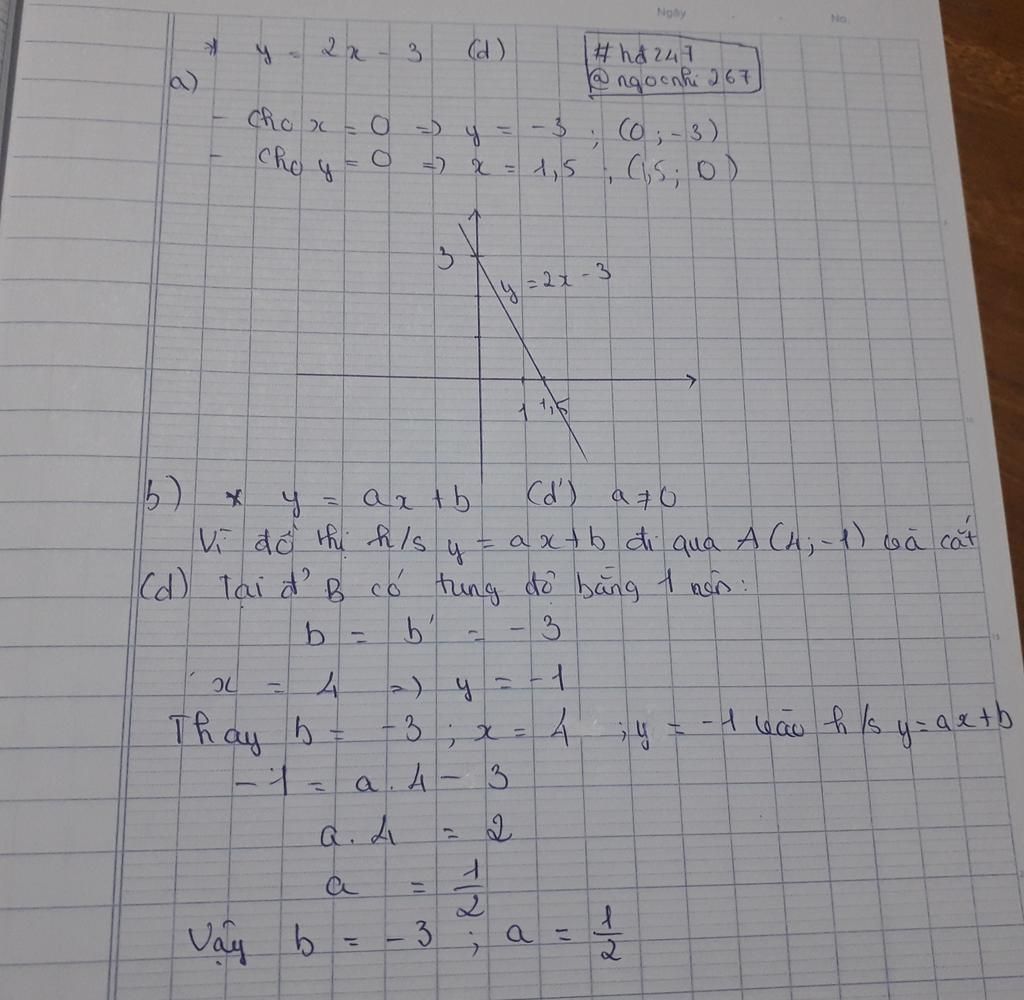 Ngày No.
* y = 2x - 3 (d)
#hd247
@ngocnhi267
a)
- Cho x = 0 => y = -3 ; (0 ; -3)
- Cho y = 0 => x = 1,5 ; (1,5 ; 0)
3
y = 2x - 3
1 1,5
b) * y = ax + b (d') a ≠ 0
Vì đồ thị h/s y = ax + b đi qua A(4; -1) và cắt
(d) Tại đ' B có tung độ bằng 1 nên:
b = b' = -3
x = 4 => y = -1
Thay b = -3 ; x = 4 ; y = -1 vào h/s y = ax + b
-1 = a . 4 - 3
a . 4 = 2
a = 1/2
Vậy b = -3 ; a = 1/2